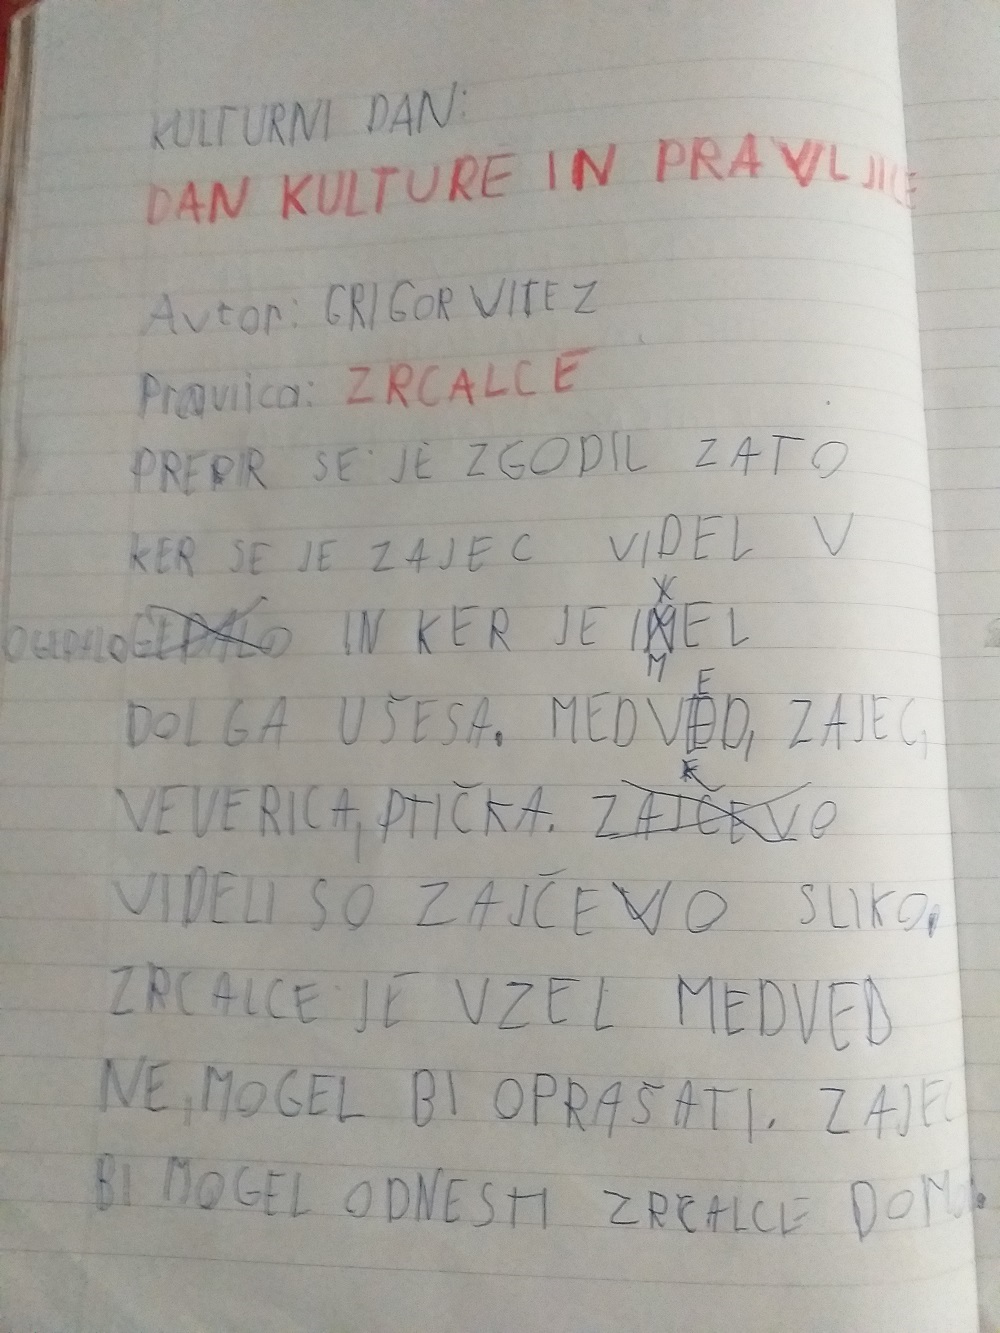 KULTURNI DAN:
DAN KULTURE IN PRAVLJICE
Avtor: GRIGOR VITEZ
Pravlica: ZRCALCE
PREPIR SE JE ZGODIL ZATO
KER SE JE ZAJEC VIDEL V
IN KER JE IMEL
DOLGA UŠESA. MEDVED, ZAJEC,
VEVERICA, PTIČKA.
VIDELI SO ZAJČEVO SLIKO.
ZRCALCE JE VZEL MEDVED
NE, MOGEL BI OPRAŠATI. ZAJEC
BI MOGEL ODNESTI ZRCALCE DOMO.